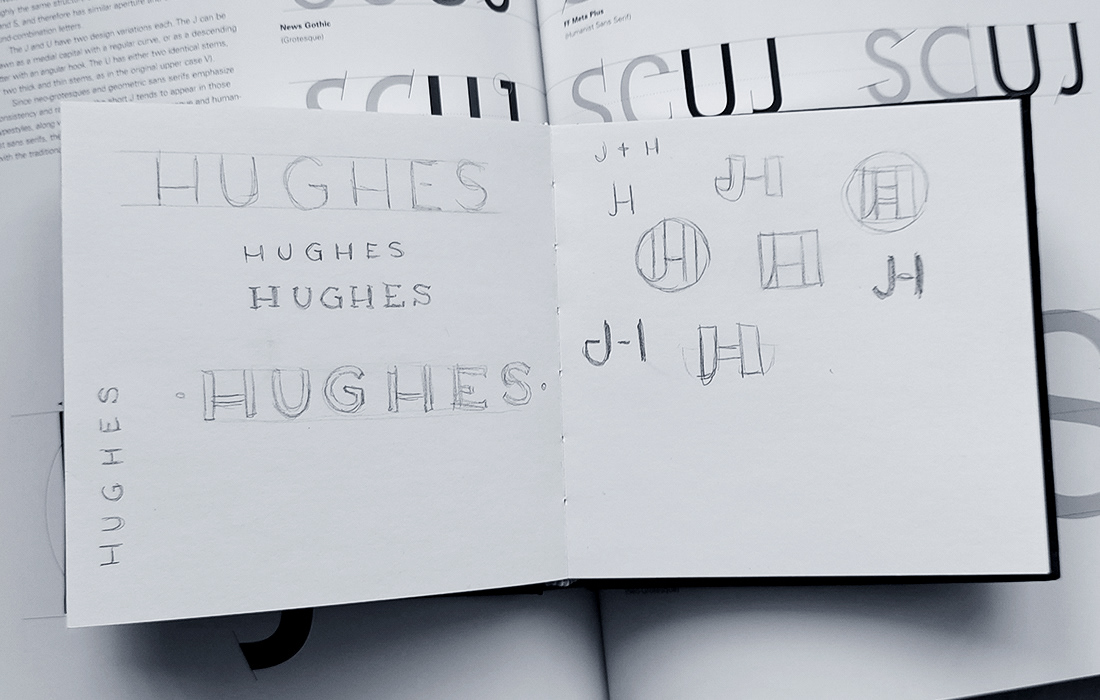 and S, and therefore has similar aperture
and-combination letters.
The J and U have two design variations each. The J can be
as a medial capital with a regular curve, or as a descending
with an angular hook. The U has either two identical stems,
two thick and thin stems, as in the original upper case V).
Since neo-grotesques and geometric sans serifs emphasize
consistency and short J tends to appear in those
typestyles, along and human-
sans serifs, the
with the
News Gothic
(Grotesque)
FF Meta Plus
(Humanist Sans Serif)
SCUJ
SCUJ
SCUJ
HUGHES
HUGHES
HUGHES
HUGHES
HUGHES
J + H
H
JH
H
JH
H
JH
J-I
H